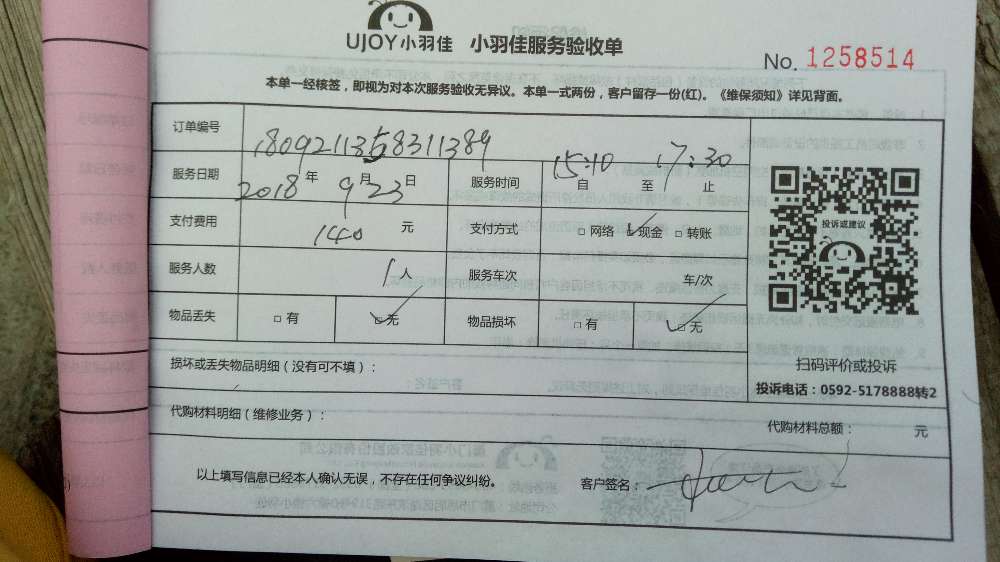 UJOY小羽佳 小羽佳服务验收单
No. 1258514
本单一经核签，即视为对本次服务验收无异议。本单一式两份，客户留存一份(红)。《维保须知》详见背面。
订单编号 1809211358311389
服务日期 2018年9月23日 服务时间 15:10自 至 17:30止
支付费用 140 元 支付方式 □网络 ☑现金 □转账
服务人数 1人 服务车次 车/次
物品丢失 □有 ☑无 物品损坏 □有 ☑无
投诉或建议
扫码评价或投诉
投诉电话：0592-5178888转2
损坏或丢失物品明细（没有可不填）：
代购材料明细（维修业务）： 代购材料总额： 元
以上填写信息已经本人确认无误，不存在任何争议纠纷。 客户签名：